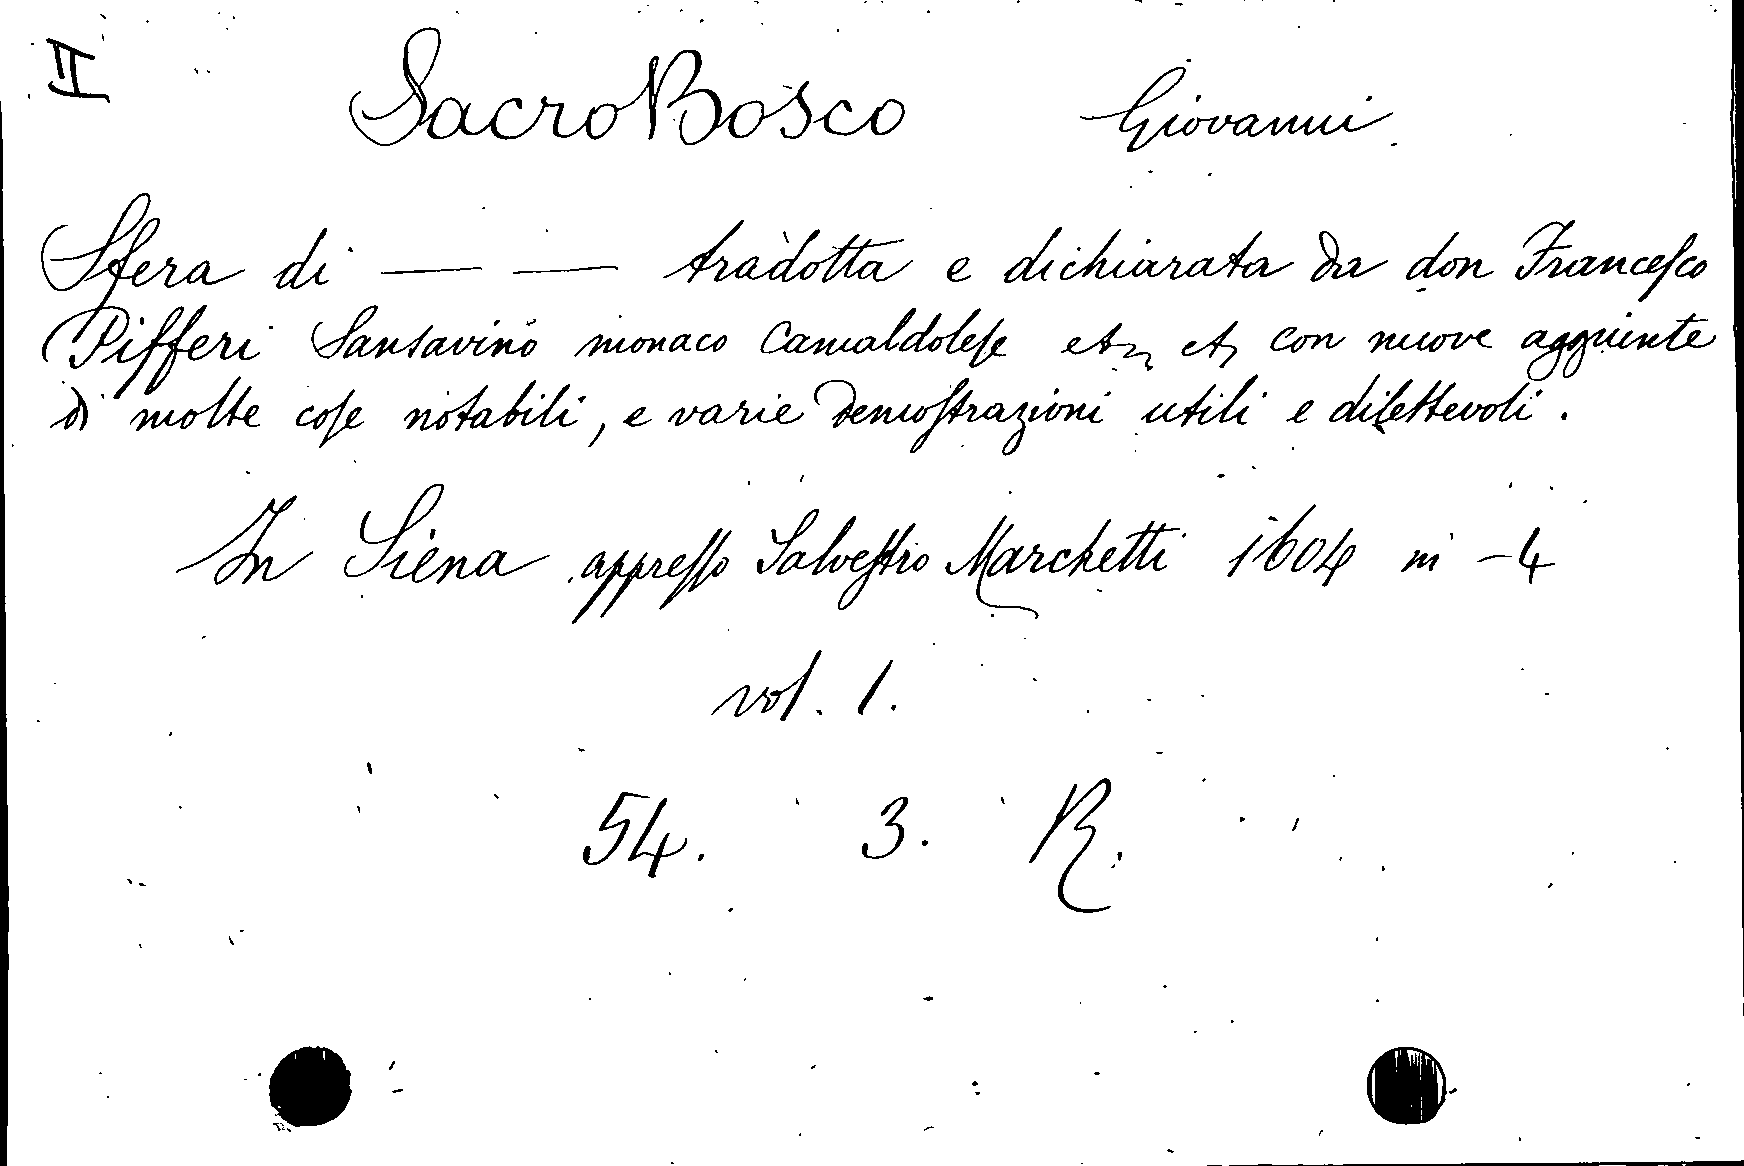 II
SacroBosco Giovanni.
Sfera di — — tradotta e dichiarata da don Francesco
Pifferi Sansavino monaco Camaldolese etc, etc, con nuove aggiunte
di molte cose notabili, e varie demostrazioni utili e dilettevoli.
In Siena appresso Salvestro Marchetti 1604 in -4
vol. 1.
54. 3. R.